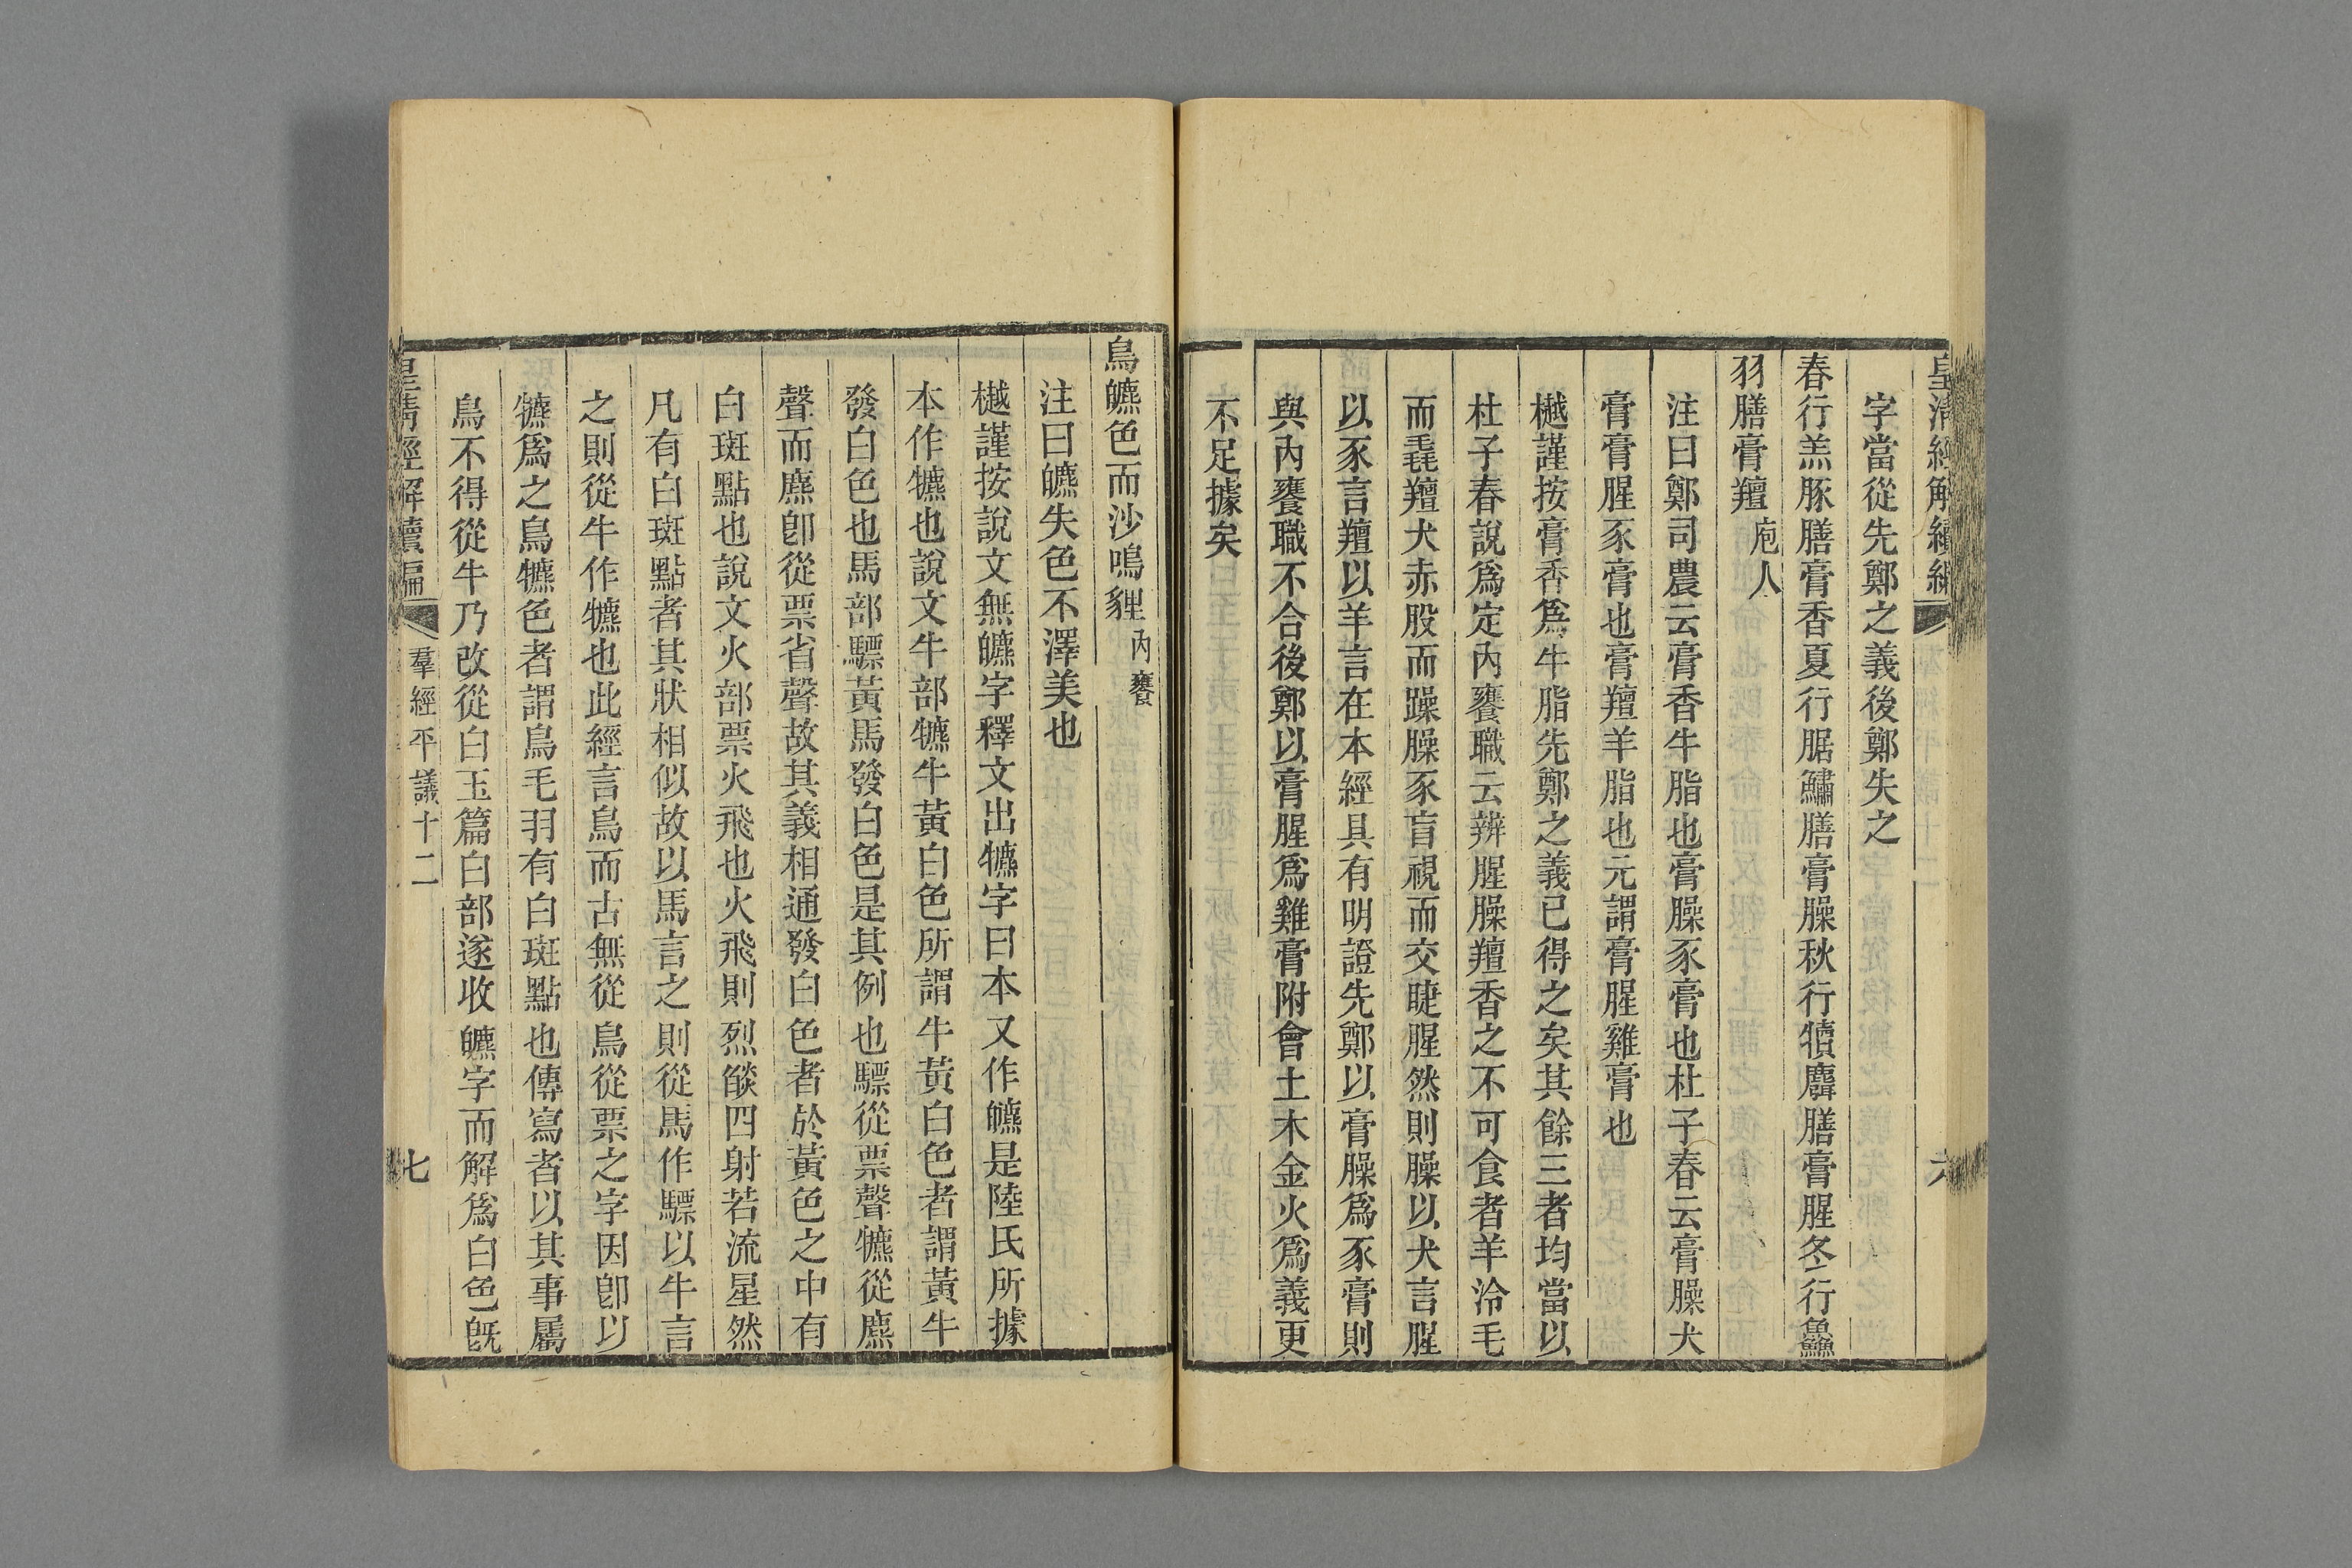 皇清經解續編
六
字當從先鄭之義後鄭失之
春行羔豚膳膏香夏行腒鱐膳膏臊秋行犢麛膳膏腥冬行鱻
羽膳膏羶庖人
注曰鄭司農云膏香牛脂也膏臊豕膏也杜子春云膏臊犬
膏膏腥豕膏也膏羶羊脂也元謂膏腥雞膏也
樾謹按膏香爲牛脂先鄭之義已得之矣其餘三者均當以
杜子春說爲定內饔職云辨腥臊羶香之不可食者羊泠毛
而毳羶犬赤股而躁臊豕盲視而交睫腥然則臊以犬言腥
以豕言羶以羊言在本經具有明證先鄭以膏臊爲豕膏則
與內饔職不合後鄭以膏腥爲雞膏附會土木金火爲義更
不足據矣
鳥皫色而沙鳴貍內饔
注曰皫失色不澤美也
樾謹按說文無皫字釋文出犥字曰本又作皫是陸氏所據
本作犥也說文牛部犥牛黃白色所謂牛黃白色者謂黃牛
發白色也馬部驃黃馬發白色是其例也驃從票聲犥從麃
聲而麃卽從票省聲故其義相通發白色者於黃色之中有
白斑點也說文火部票火飛也火飛則烈燄四射若流星然
凡有白斑點者其狀相似故以馬言之則從馬作驃以牛言
之則從牛作犥也此經言鳥而古無從鳥從票之字因卽以
犥爲之鳥犥色者謂鳥毛羽有白斑點也傳寫者以其事屬
鳥不得從牛乃改從白玉篇白部遂收皫字而解爲白色旣
皇清經解續編
羣經平議十二
七